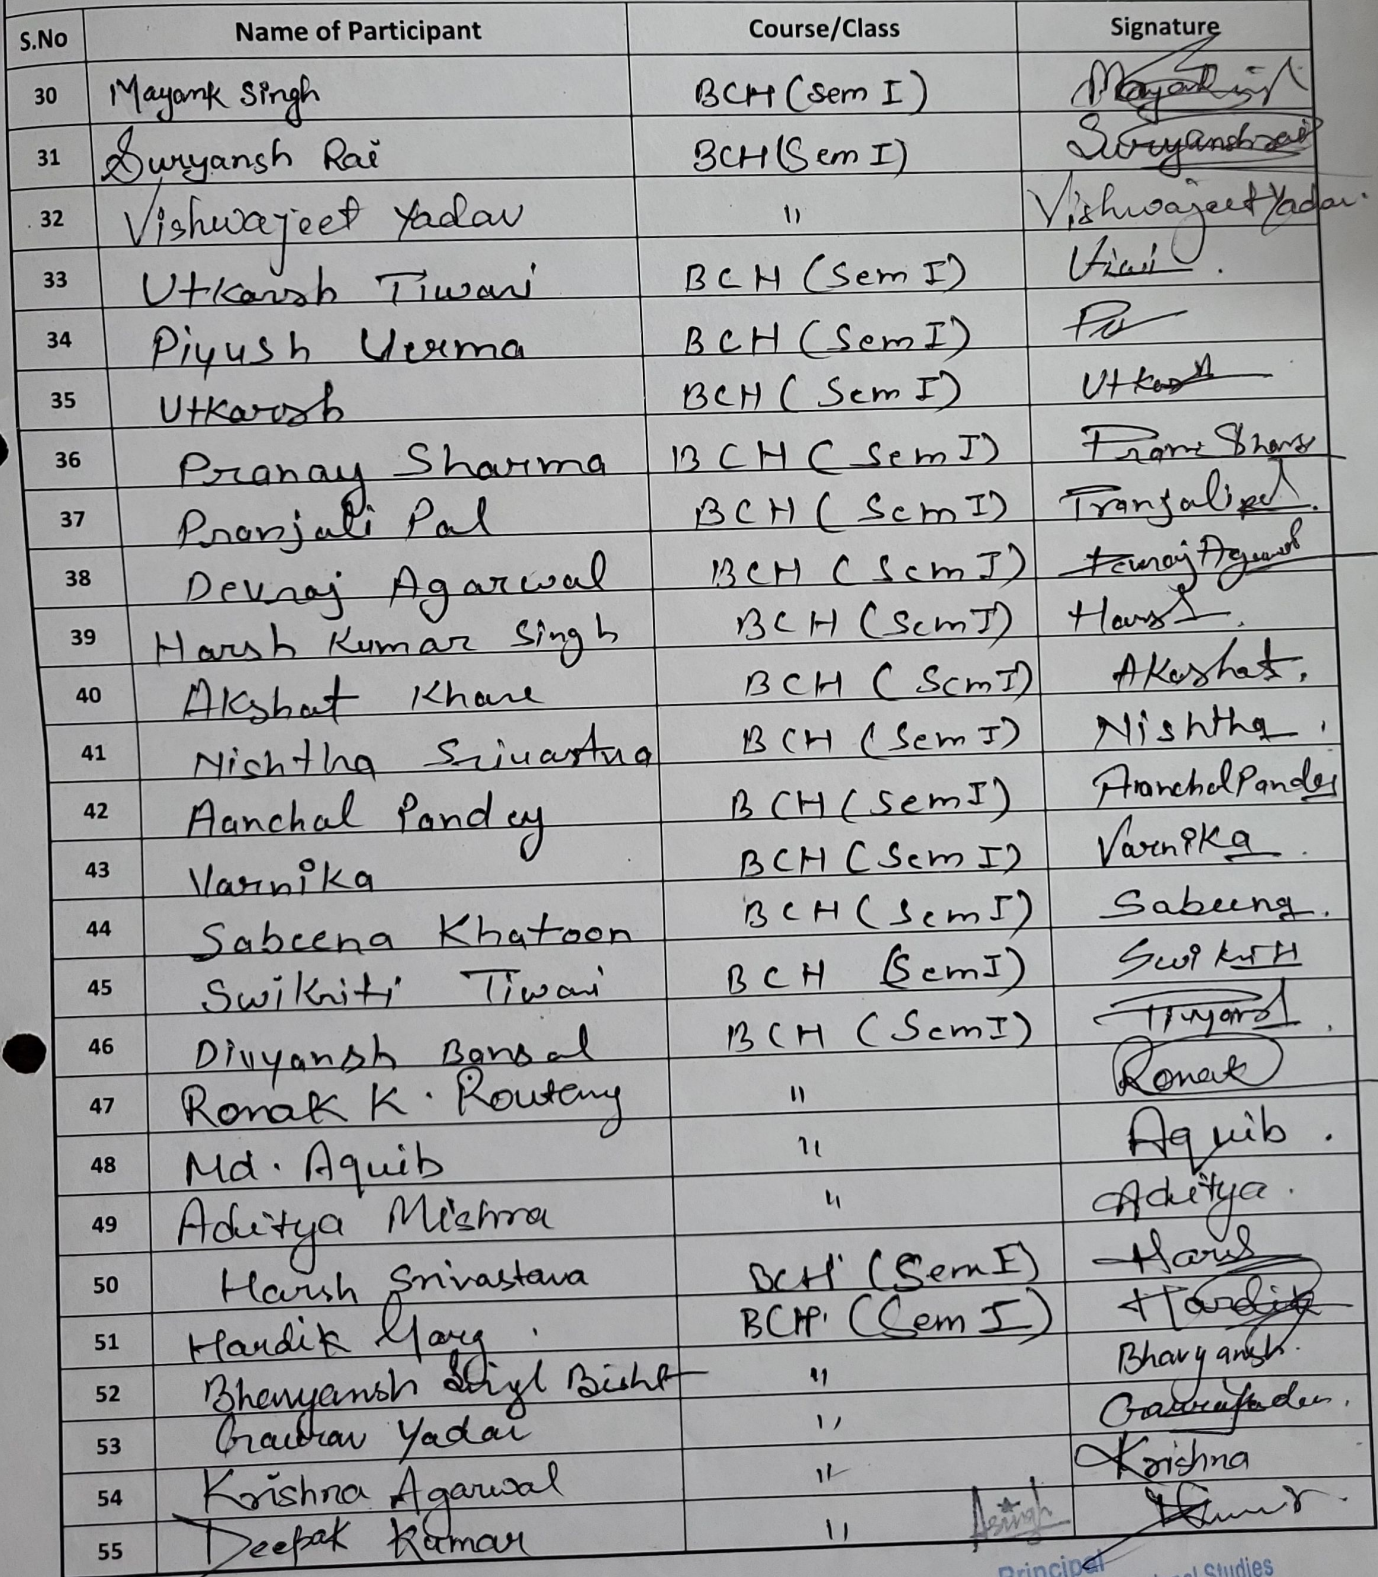 S.No Name of Participant Course/Class Signature
30 Mayank Singh BCH (Sem I) Mayank Singh
31 Suryansh Rai BCH (Sem I) Suryansh Rai
32 Vishwajeet Yadav " Vishwajeet Yadav.
33 Utkarsh Tiwari BCH (Sem I)
34 Piyush Verma BCH (Sem I)
35 Utkarsh BCH (Sem I) Utkarsh
36 Pranay Sharma BCH (Sem I)
37 Pranjali Pal BCH (Sem I) Pranjali Pal.
38 Devraj Agarwal BCH (Sem I) Devraj Agarwal
39 Harsh Kumar Singh BCH (Sem I) Harsh.
40 Akshat Khare BCH (Sem I) Akashat.
41 Nishtha Srivastva BCH (Sem I) Nishtha.
42 Aanchal Pandey BCH (Sem I) Aanchal Pandey
43 Varnika BCH (Sem I) Varnika.
44 Sabeena Khatoon BCH (Sem I) Sabeena.
45 Swikriti Tiwari BCH (Sem I) Swikriti
46 Divyansh Bansal BCH (Sem I)
47 Ronak K. Routeny " Ronak
48 Md. Aquib " Aquib.
49 Aditya Mishra " Aditya.
50 Harsh Srivastava BCH (Sem I) Harsh
51 Hardik Garg. BCH. (Sem I) Hardik
52 Bhavyansh Bisht " Bhavyansh.
53 Gaurav Yadav " Gaurav Yadav.
54 Krishna Agarwal " Krishna
55 Deepak Kumar "
Asingh
Principal
Studies